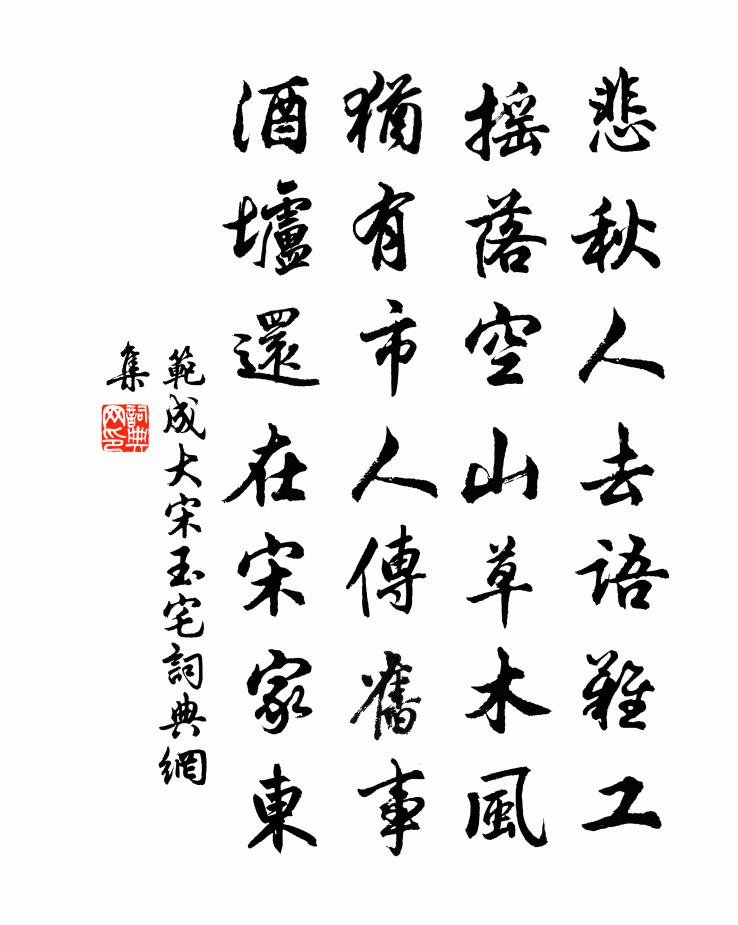 悲秋人去語難工
搖落空山草木風
猶有市人傳舊事
酒壚還在宋家東
範成大宋玉宅詞典網
集
詞典
网印